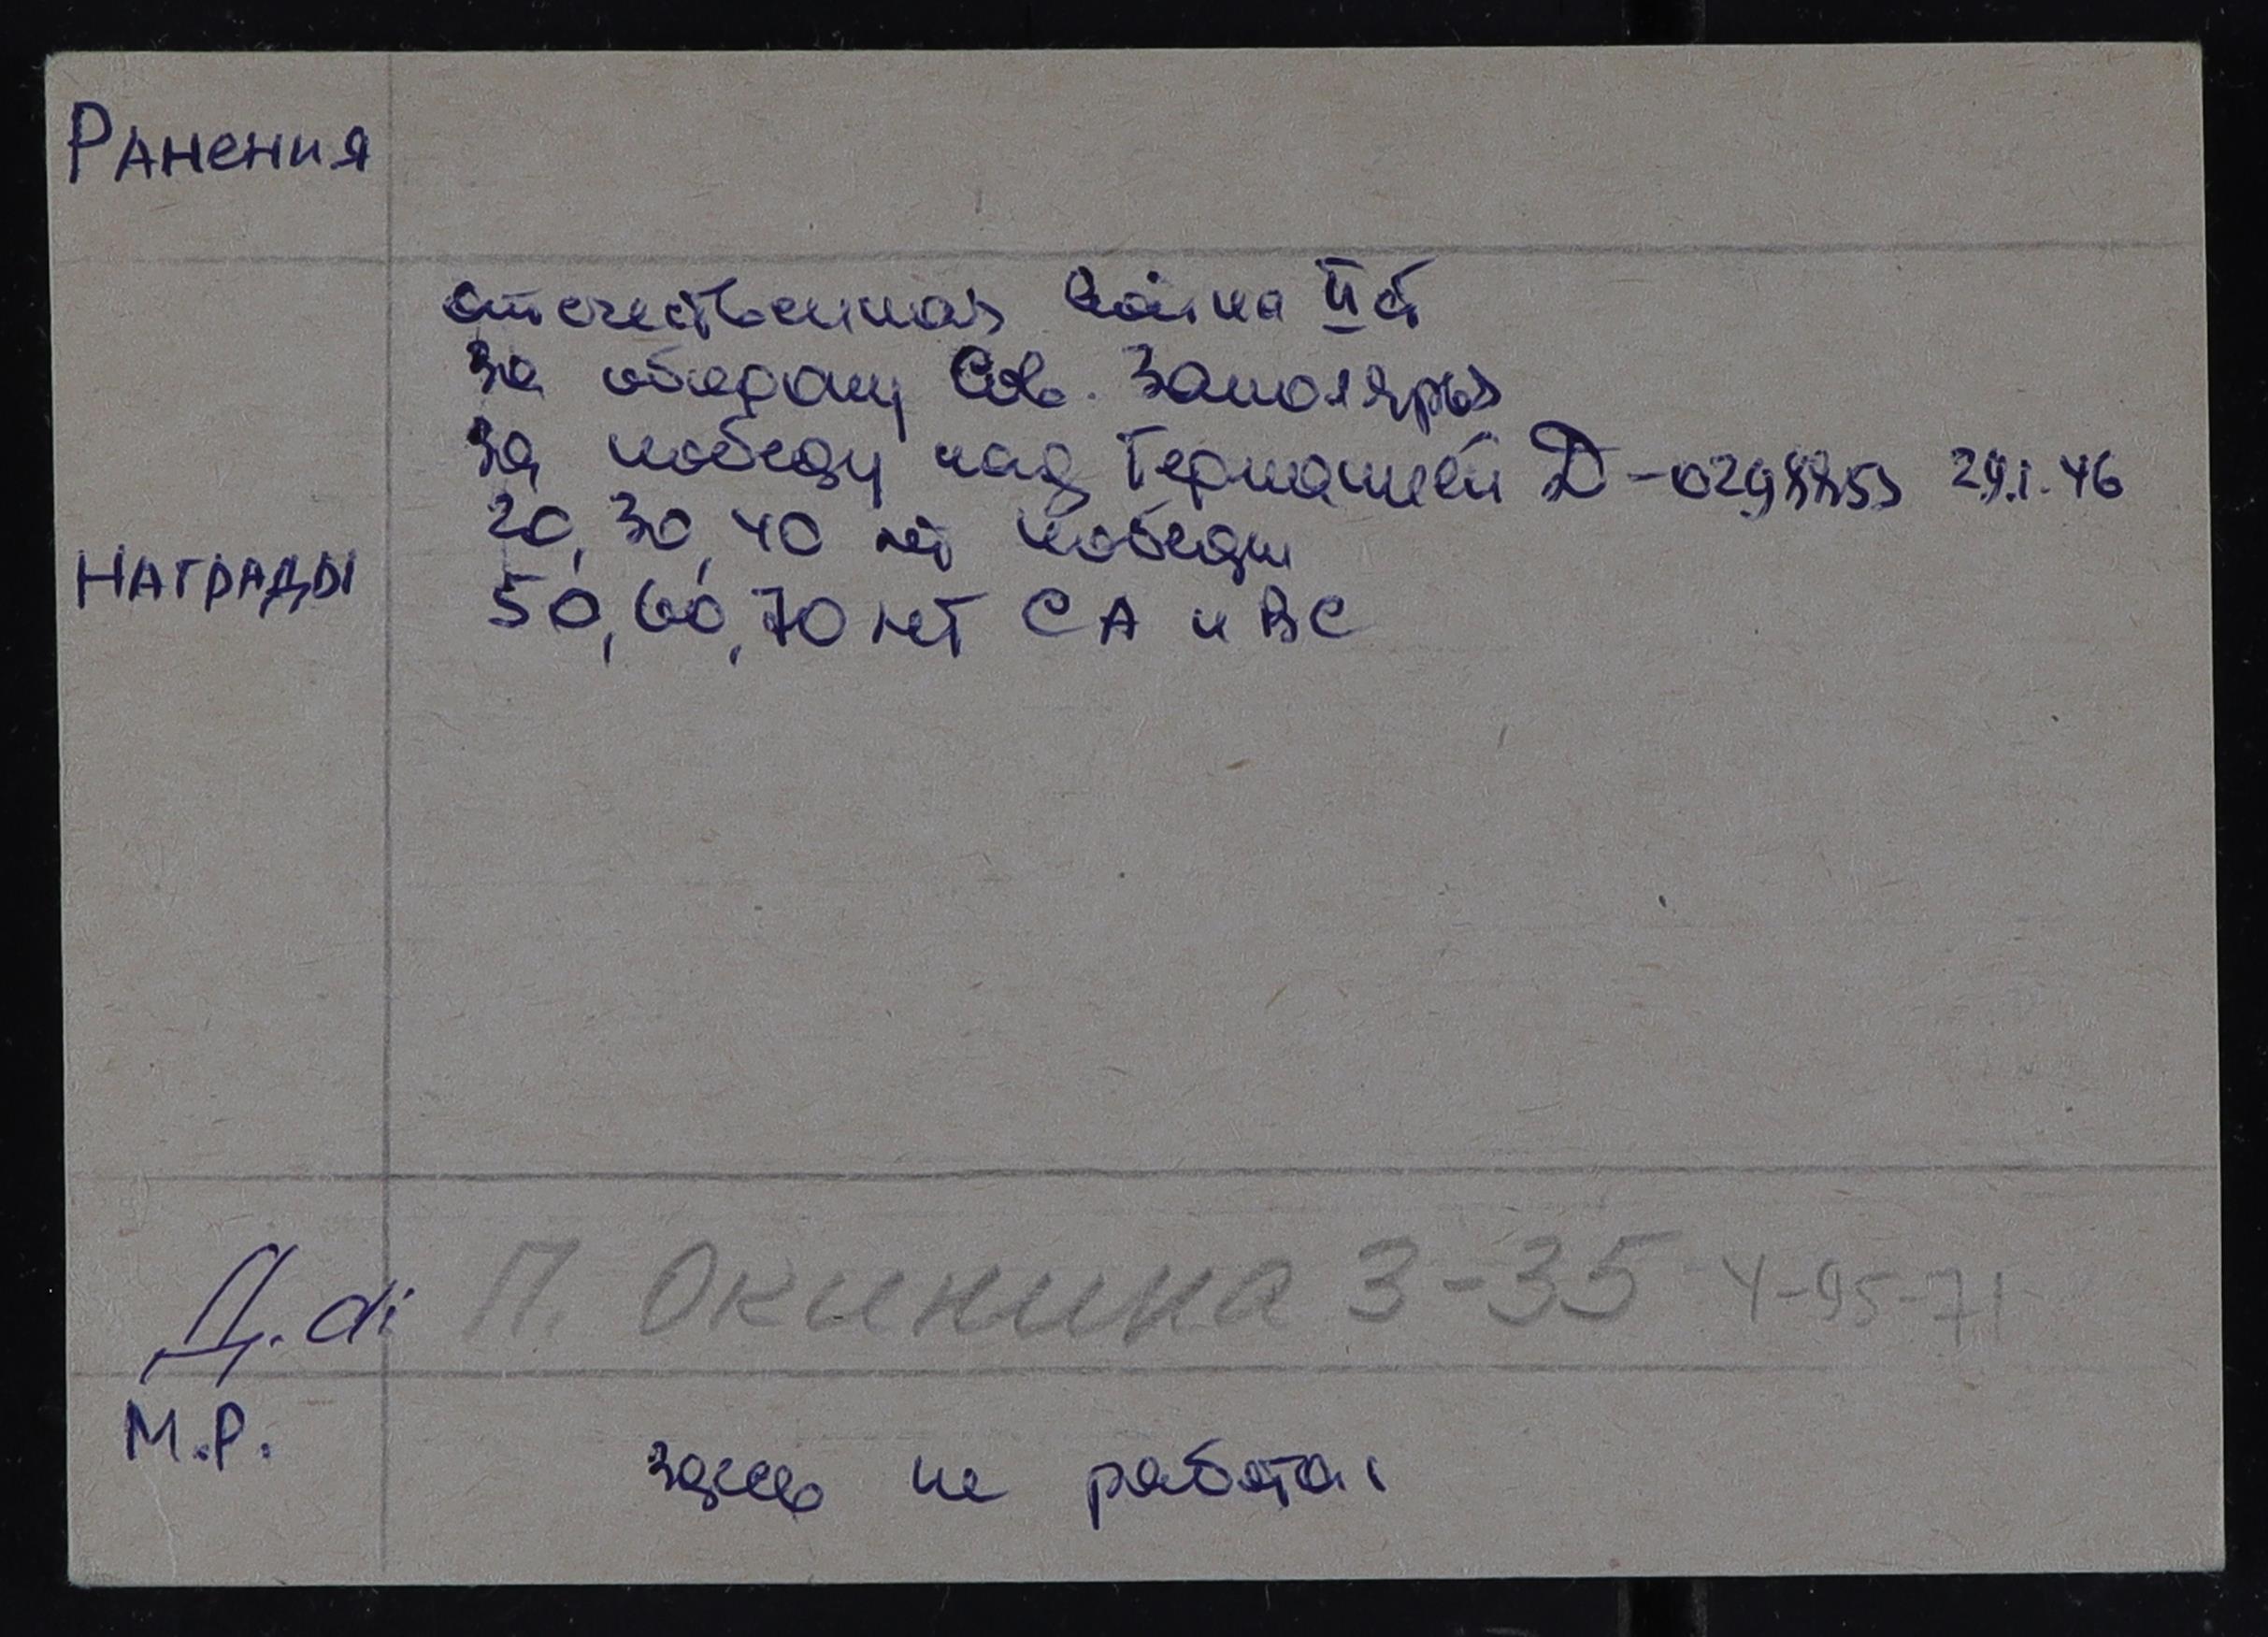 Ранения
Отечественная война II ст
За оборону Сов. Заполярья
За победу над Германией Д-0298853 29.1.46
20, 30, 40 лет победы
Награды
50, 60, 70 лет СА и ВС
Д. а: П. Окинина 3-35 4-95-71
М.Р.
здесь не работал